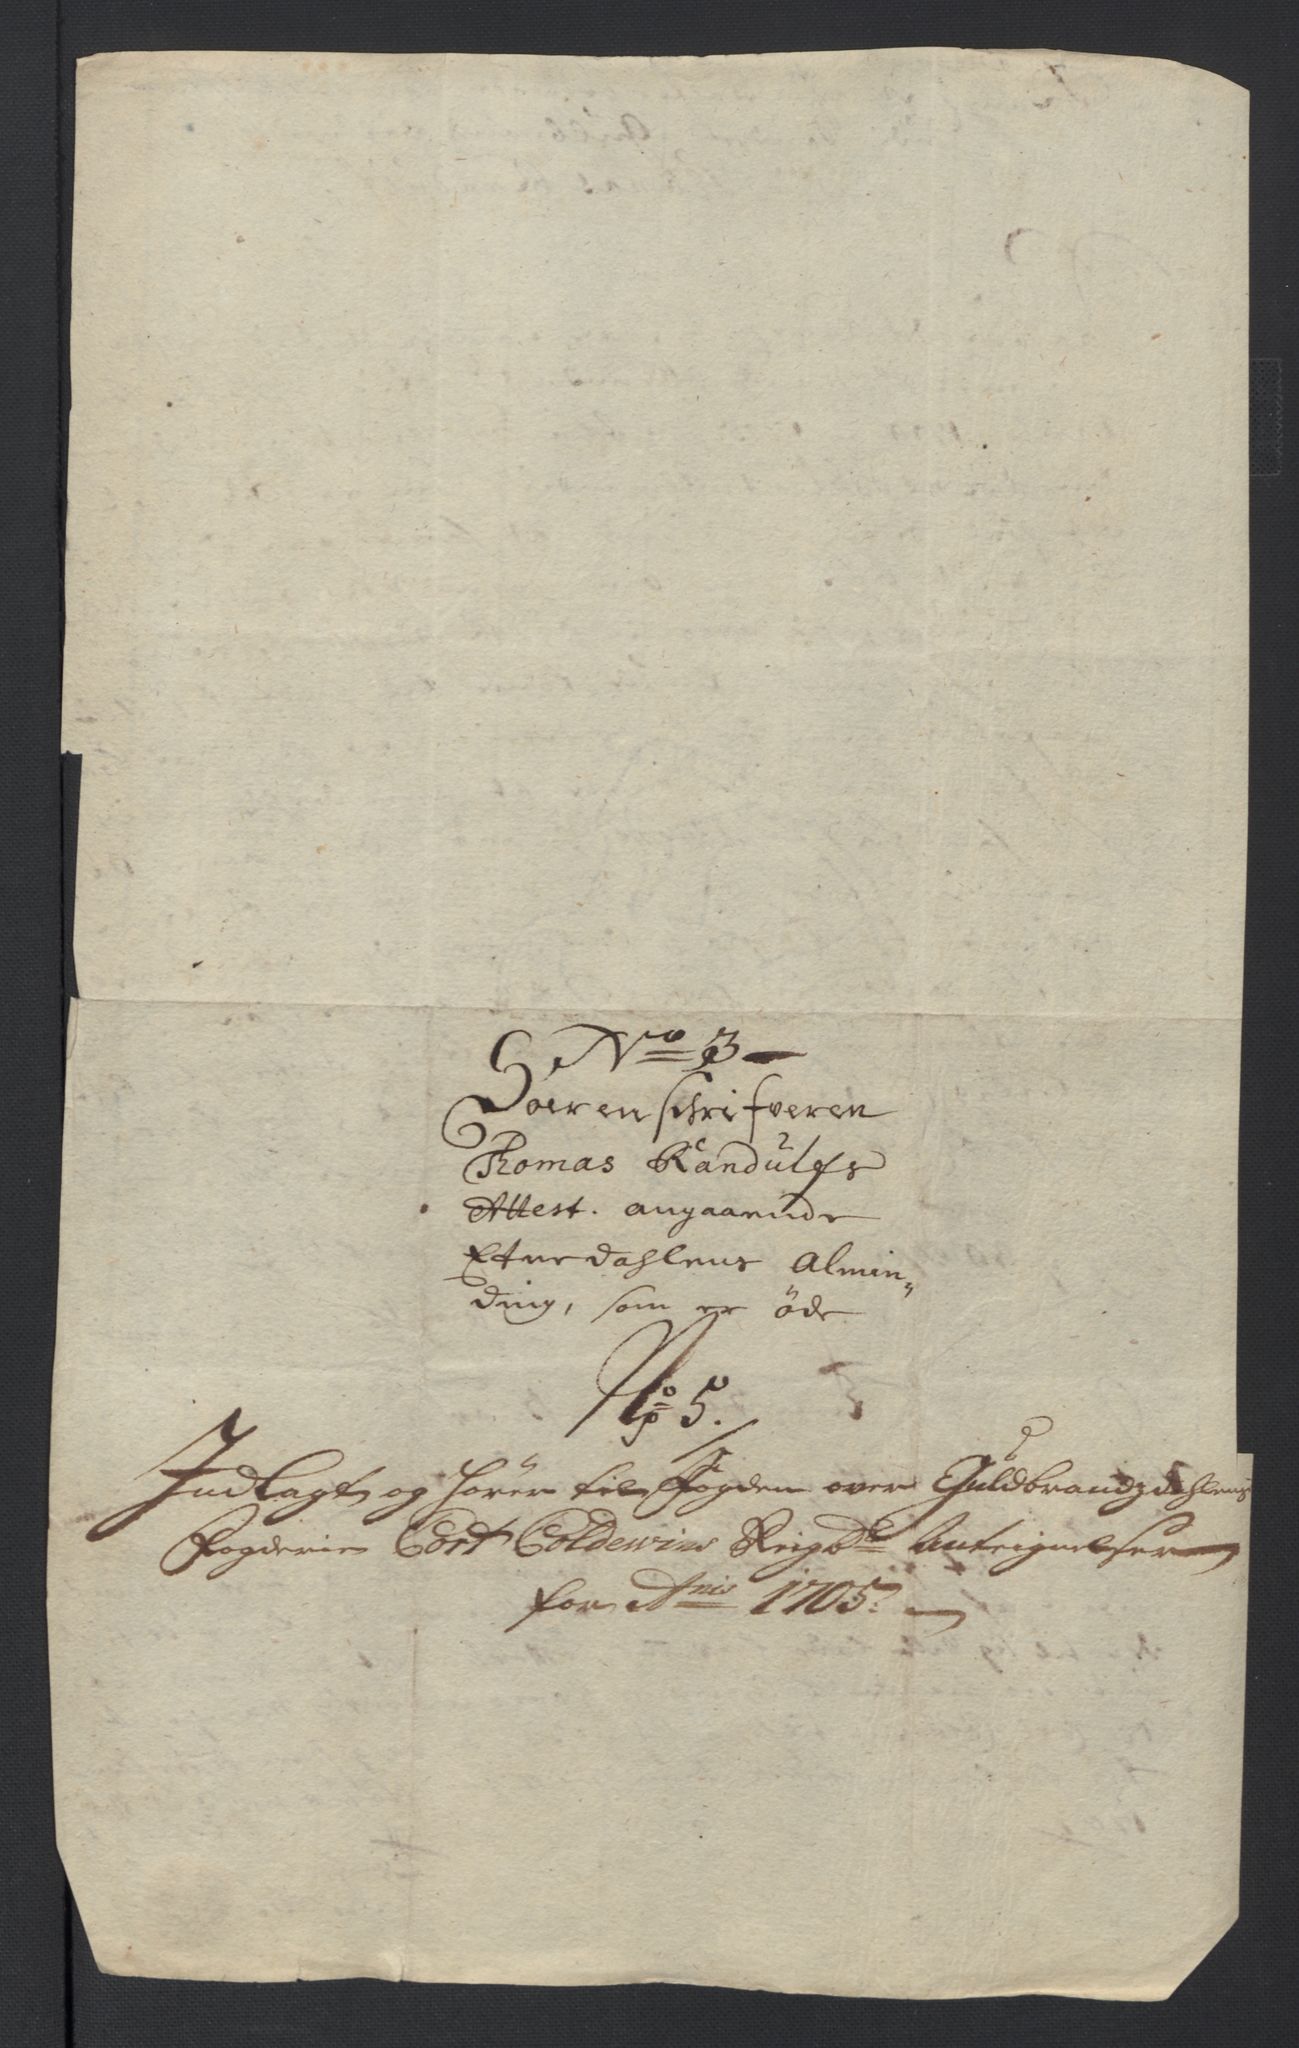 No 3
Soerenschrifveren
Thomas Randulfs
Attest. angaaende
Etnedahlens Almin„
ding, som er öde
No 5.
Indlagt og hörer til Fogden over Guldbrandzdahlens
Fogderie Cort Coldewins Reigb: Anteignelser
for Anio 1705.